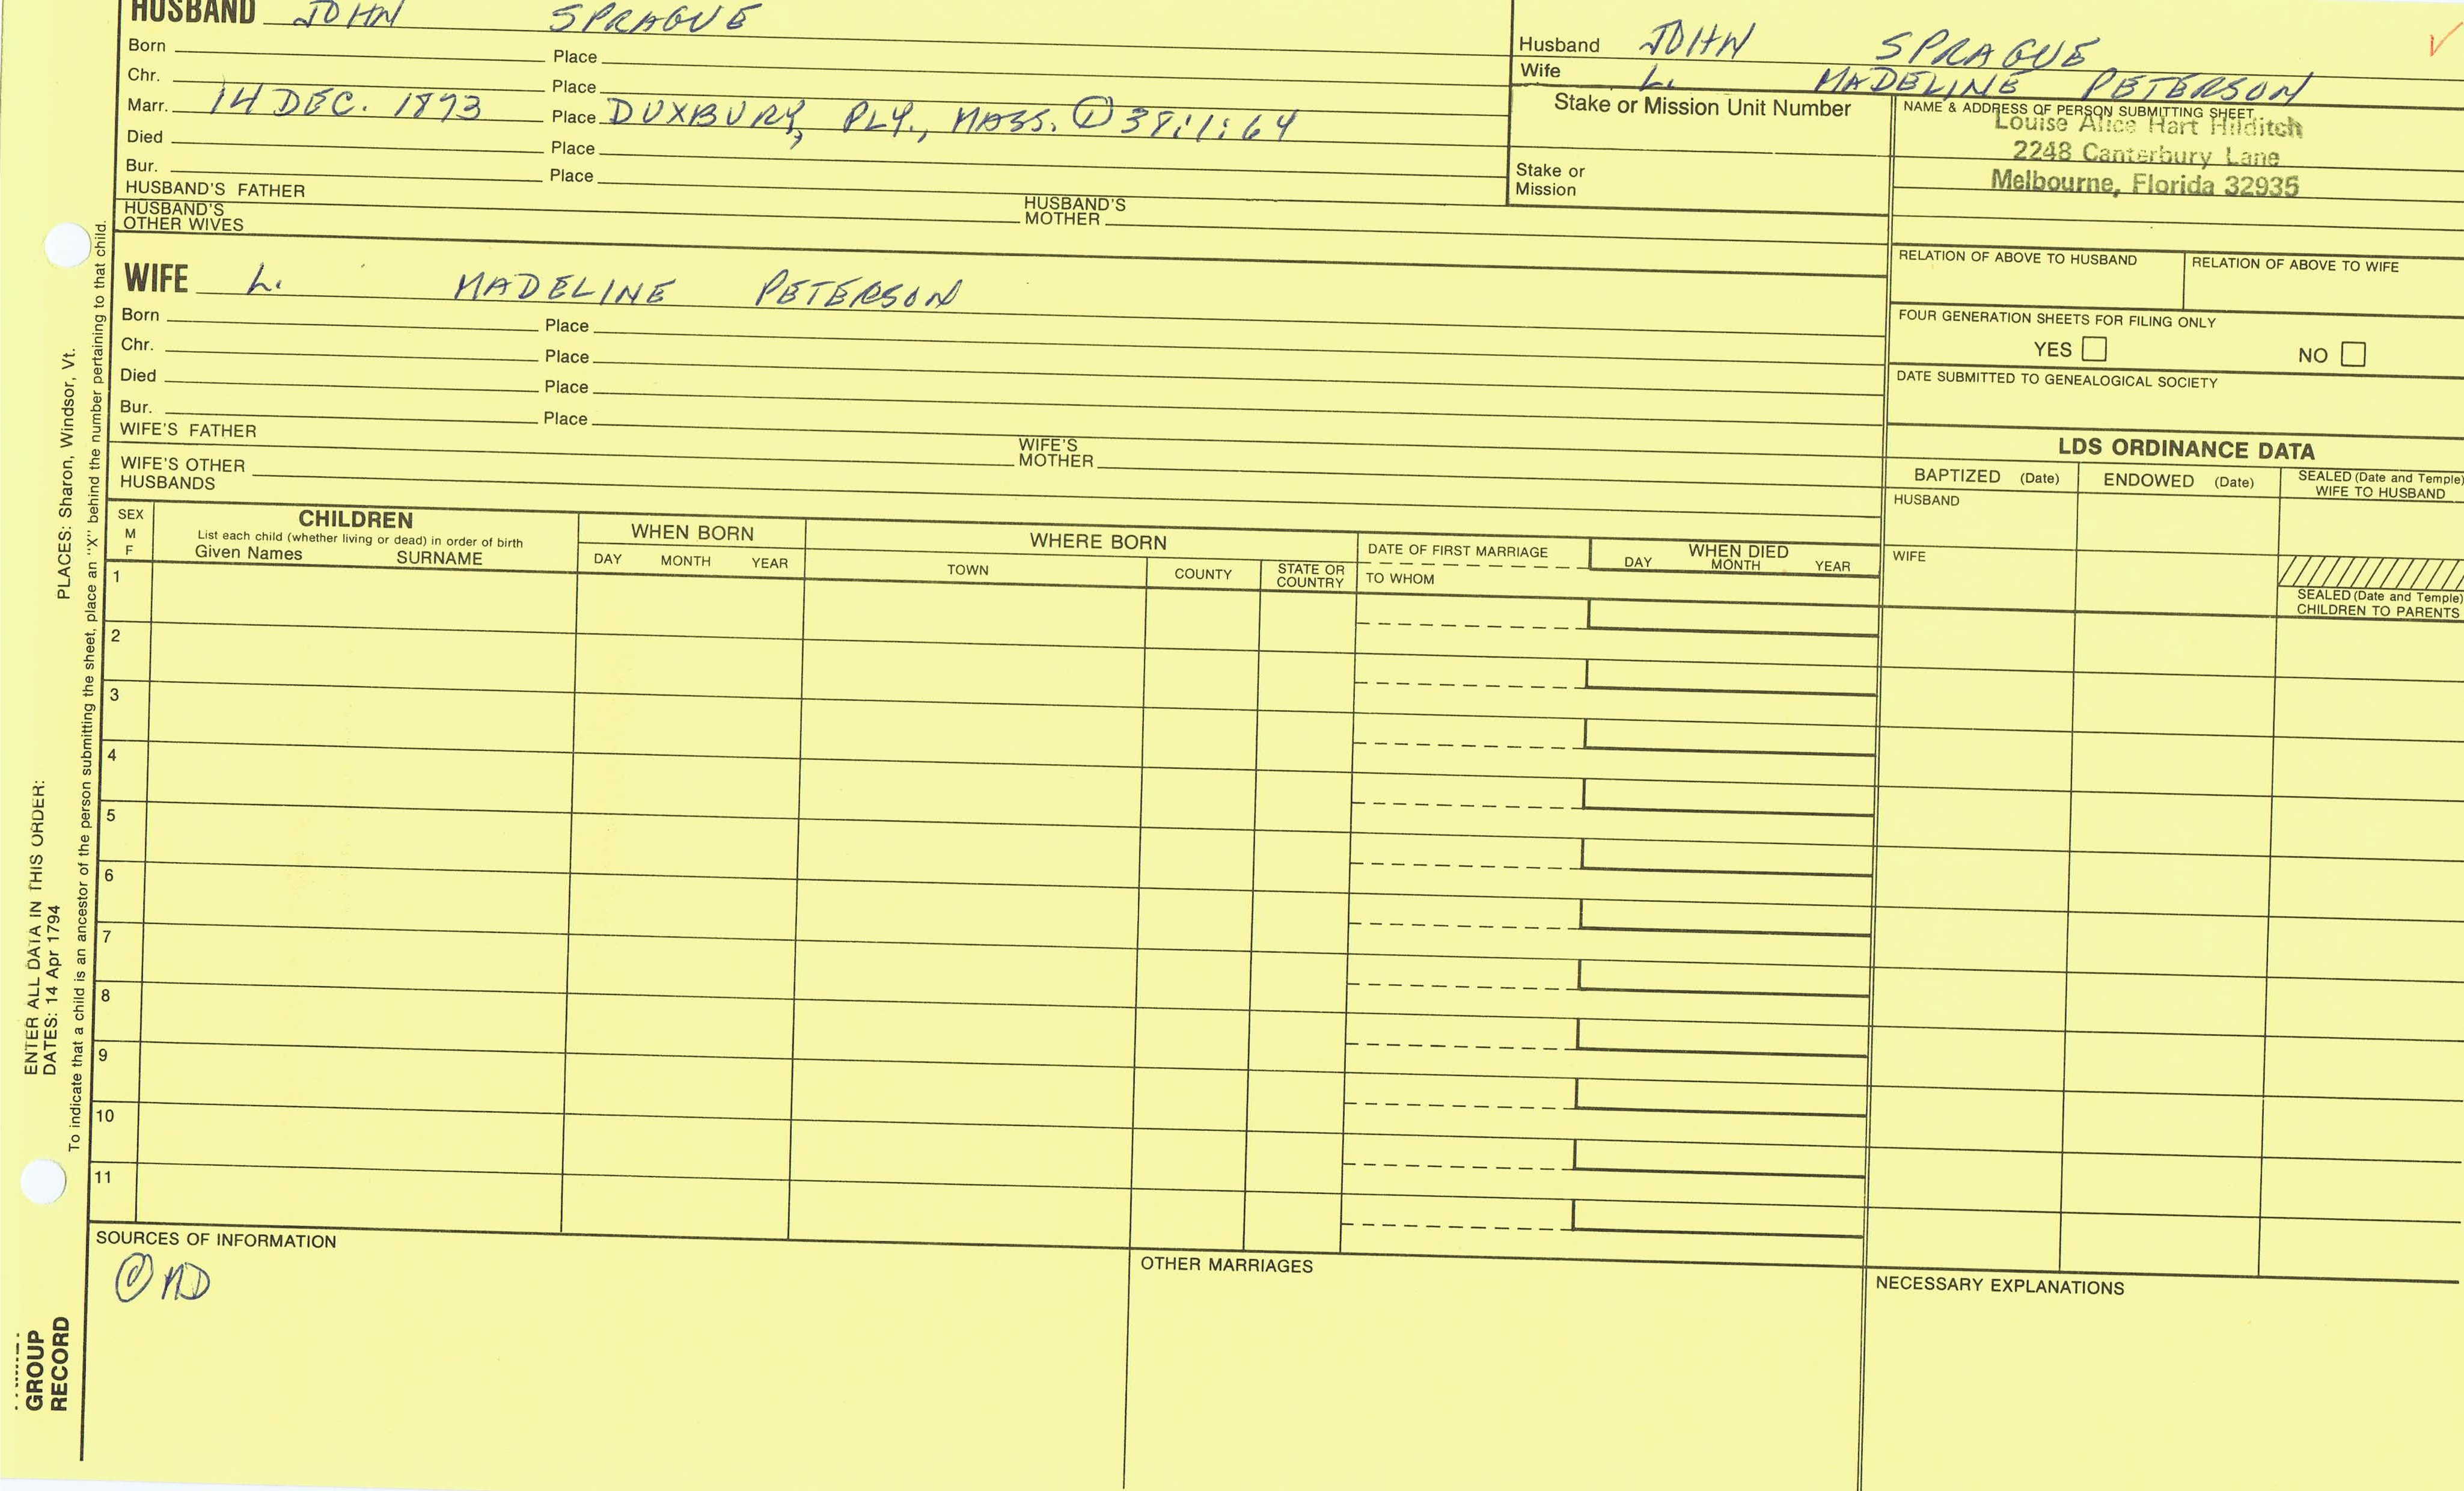 HUSBAND JOHN SPRAGUE
Born Place
Chr. Place
Marr. 14 DEC. 1893 Place DUXBURY, PLY., MASS. ① 38:1:64
Died Place
Bur. Place
HUSBAND'S FATHER HUSBAND'S MOTHER
HUSBAND'S OTHER WIVES
Husband JOHN SPRAGUE
Wife L. MADELINE PETERSON
Stake or Mission Unit Number
Stake or Mission
NAME & ADDRESS OF PERSON SUBMITTING SHEET
Louise Alice Hart Hilditch
2248 Canterbury Lane
Melbourne, Florida 32935
RELATION OF ABOVE TO HUSBAND RELATION OF ABOVE TO WIFE
FOUR GENERATION SHEETS FOR FILING ONLY
YES NO
DATE SUBMITTED TO GENEALOGICAL SOCIETY
WIFE L. MADELINE PETERSON
Born Place
Chr. Place
Died Place
Bur. Place
WIFE'S FATHER WIFE'S MOTHER
WIFE'S OTHER HUSBANDS
LDS ORDINANCE DATA
BAPTIZED (Date) ENDOWED (Date) SEALED (Date and Temple) WIFE TO HUSBAND
HUSBAND
WIFE
SEALED (Date and Temple) CHILDREN TO PARENTS
SEX M F
CHILDREN
List each child (whether living or dead) in order of birth
Given Names SURNAME
WHEN BORN
DAY MONTH YEAR
WHERE BORN
TOWN COUNTY STATE OR COUNTRY
DATE OF FIRST MARRIAGE
TO WHOM
WHEN DIED
DAY MONTH YEAR
1
2
3
4
5
6
7
8
9
10
11
SOURCES OF INFORMATION
① MD
OTHER MARRIAGES
NECESSARY EXPLANATIONS
ENTER ALL DATA IN THIS ORDER:
DATES: 14 Apr 1794 PLACES: Sharon, Windsor, Vt.
To indicate that a child is an ancestor of the person submitting the sheet, place an "X" behind the number pertaining to that child.
GROUP
RECORD